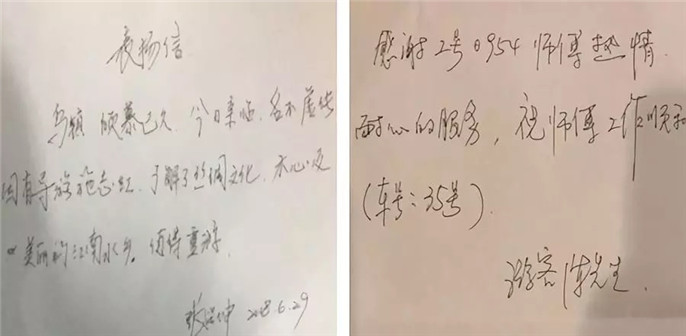 表扬信
乌镇 倾慕已久，今日亲临，名不虚传
因有导游施志红，了解了丝绸文化，
美丽的江南水乡。值得重游。
2018.6.29
感谢2号0954师傅热情
耐心的服务，祝师傅工作顺利
(车号：35号)
游客 陈先生.